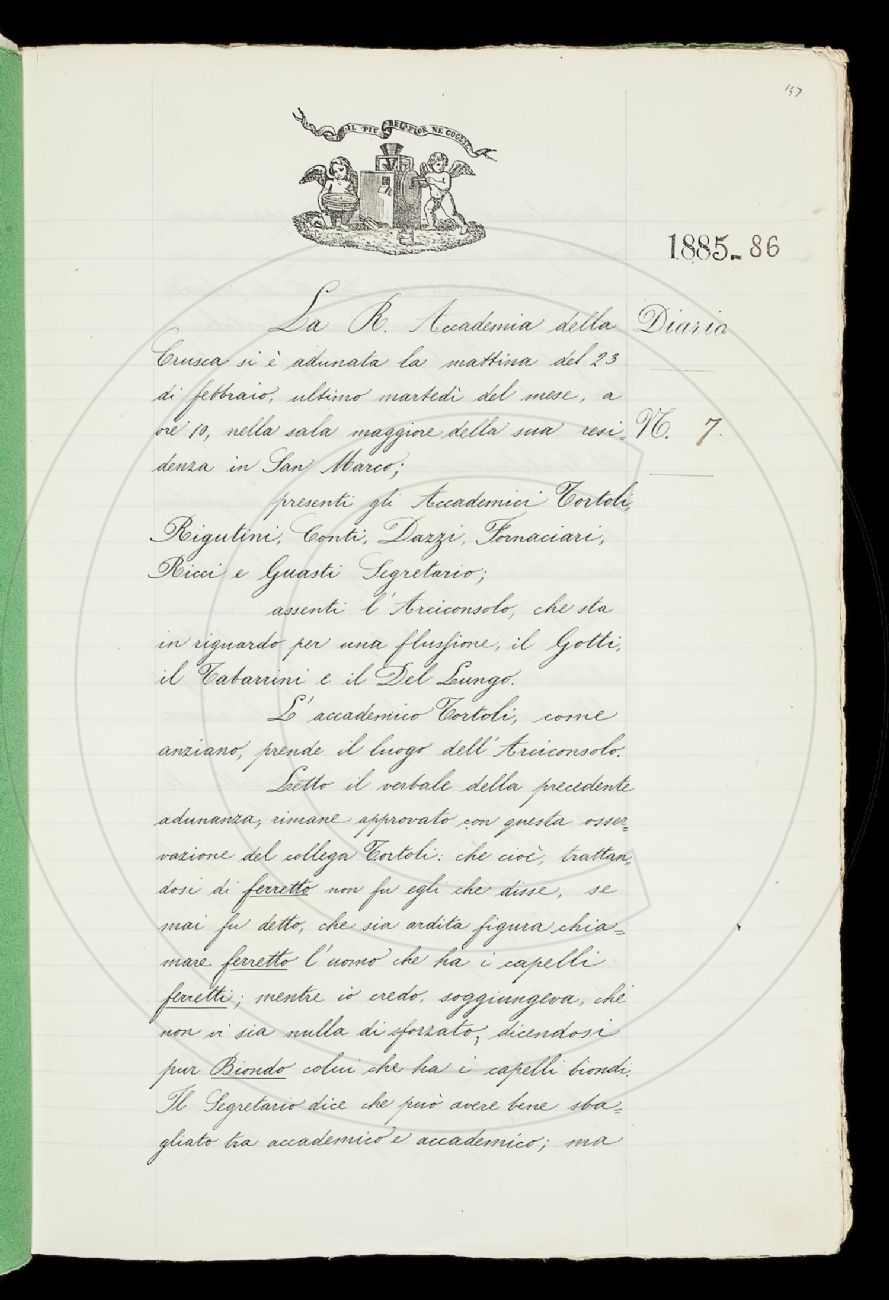 157
IL PIÙ BEL FIOR NE COGLIE
1885-86
La R. Accademia della
Diario
Crusca si è adunata la mattina del 23
di febbraio, ultimo martedì del mese, a
ore 10, nella sala maggiore della sua resi-
N. 7.
denza in San Marco;
presenti gli Accademici Tortoli,
Rigutini, Conti, Dazzi, Fornaciari,
Ricci e Guasti Segretario;
assenti l'Arciconsolo, che sta
in riguardo per una flussione, il Gotti,
il Tabarrini e il Del Lungo.
L'accademico Tortoli, come
anziano, prende il luogo dell'Arciconsolo.
Letto il verbale della precedente
adunanza, rimane approvato con questa osser=
vazione del collega Tortoli: che cioè, trattan=
dosi di ferretto non fu egli che disse, se
mai fu detto, che sia ardita figura chia=
mare ferretto l'uomo che ha i capelli
ferretti; mentre io credo, soggiungeva, che
non vi sia nulla di sforzato, dicendosi
pur Biondo colui che ha i capelli biondi.
Il Segretario dice che può avere bene sba=
gliato tra accademico e accademico; ma